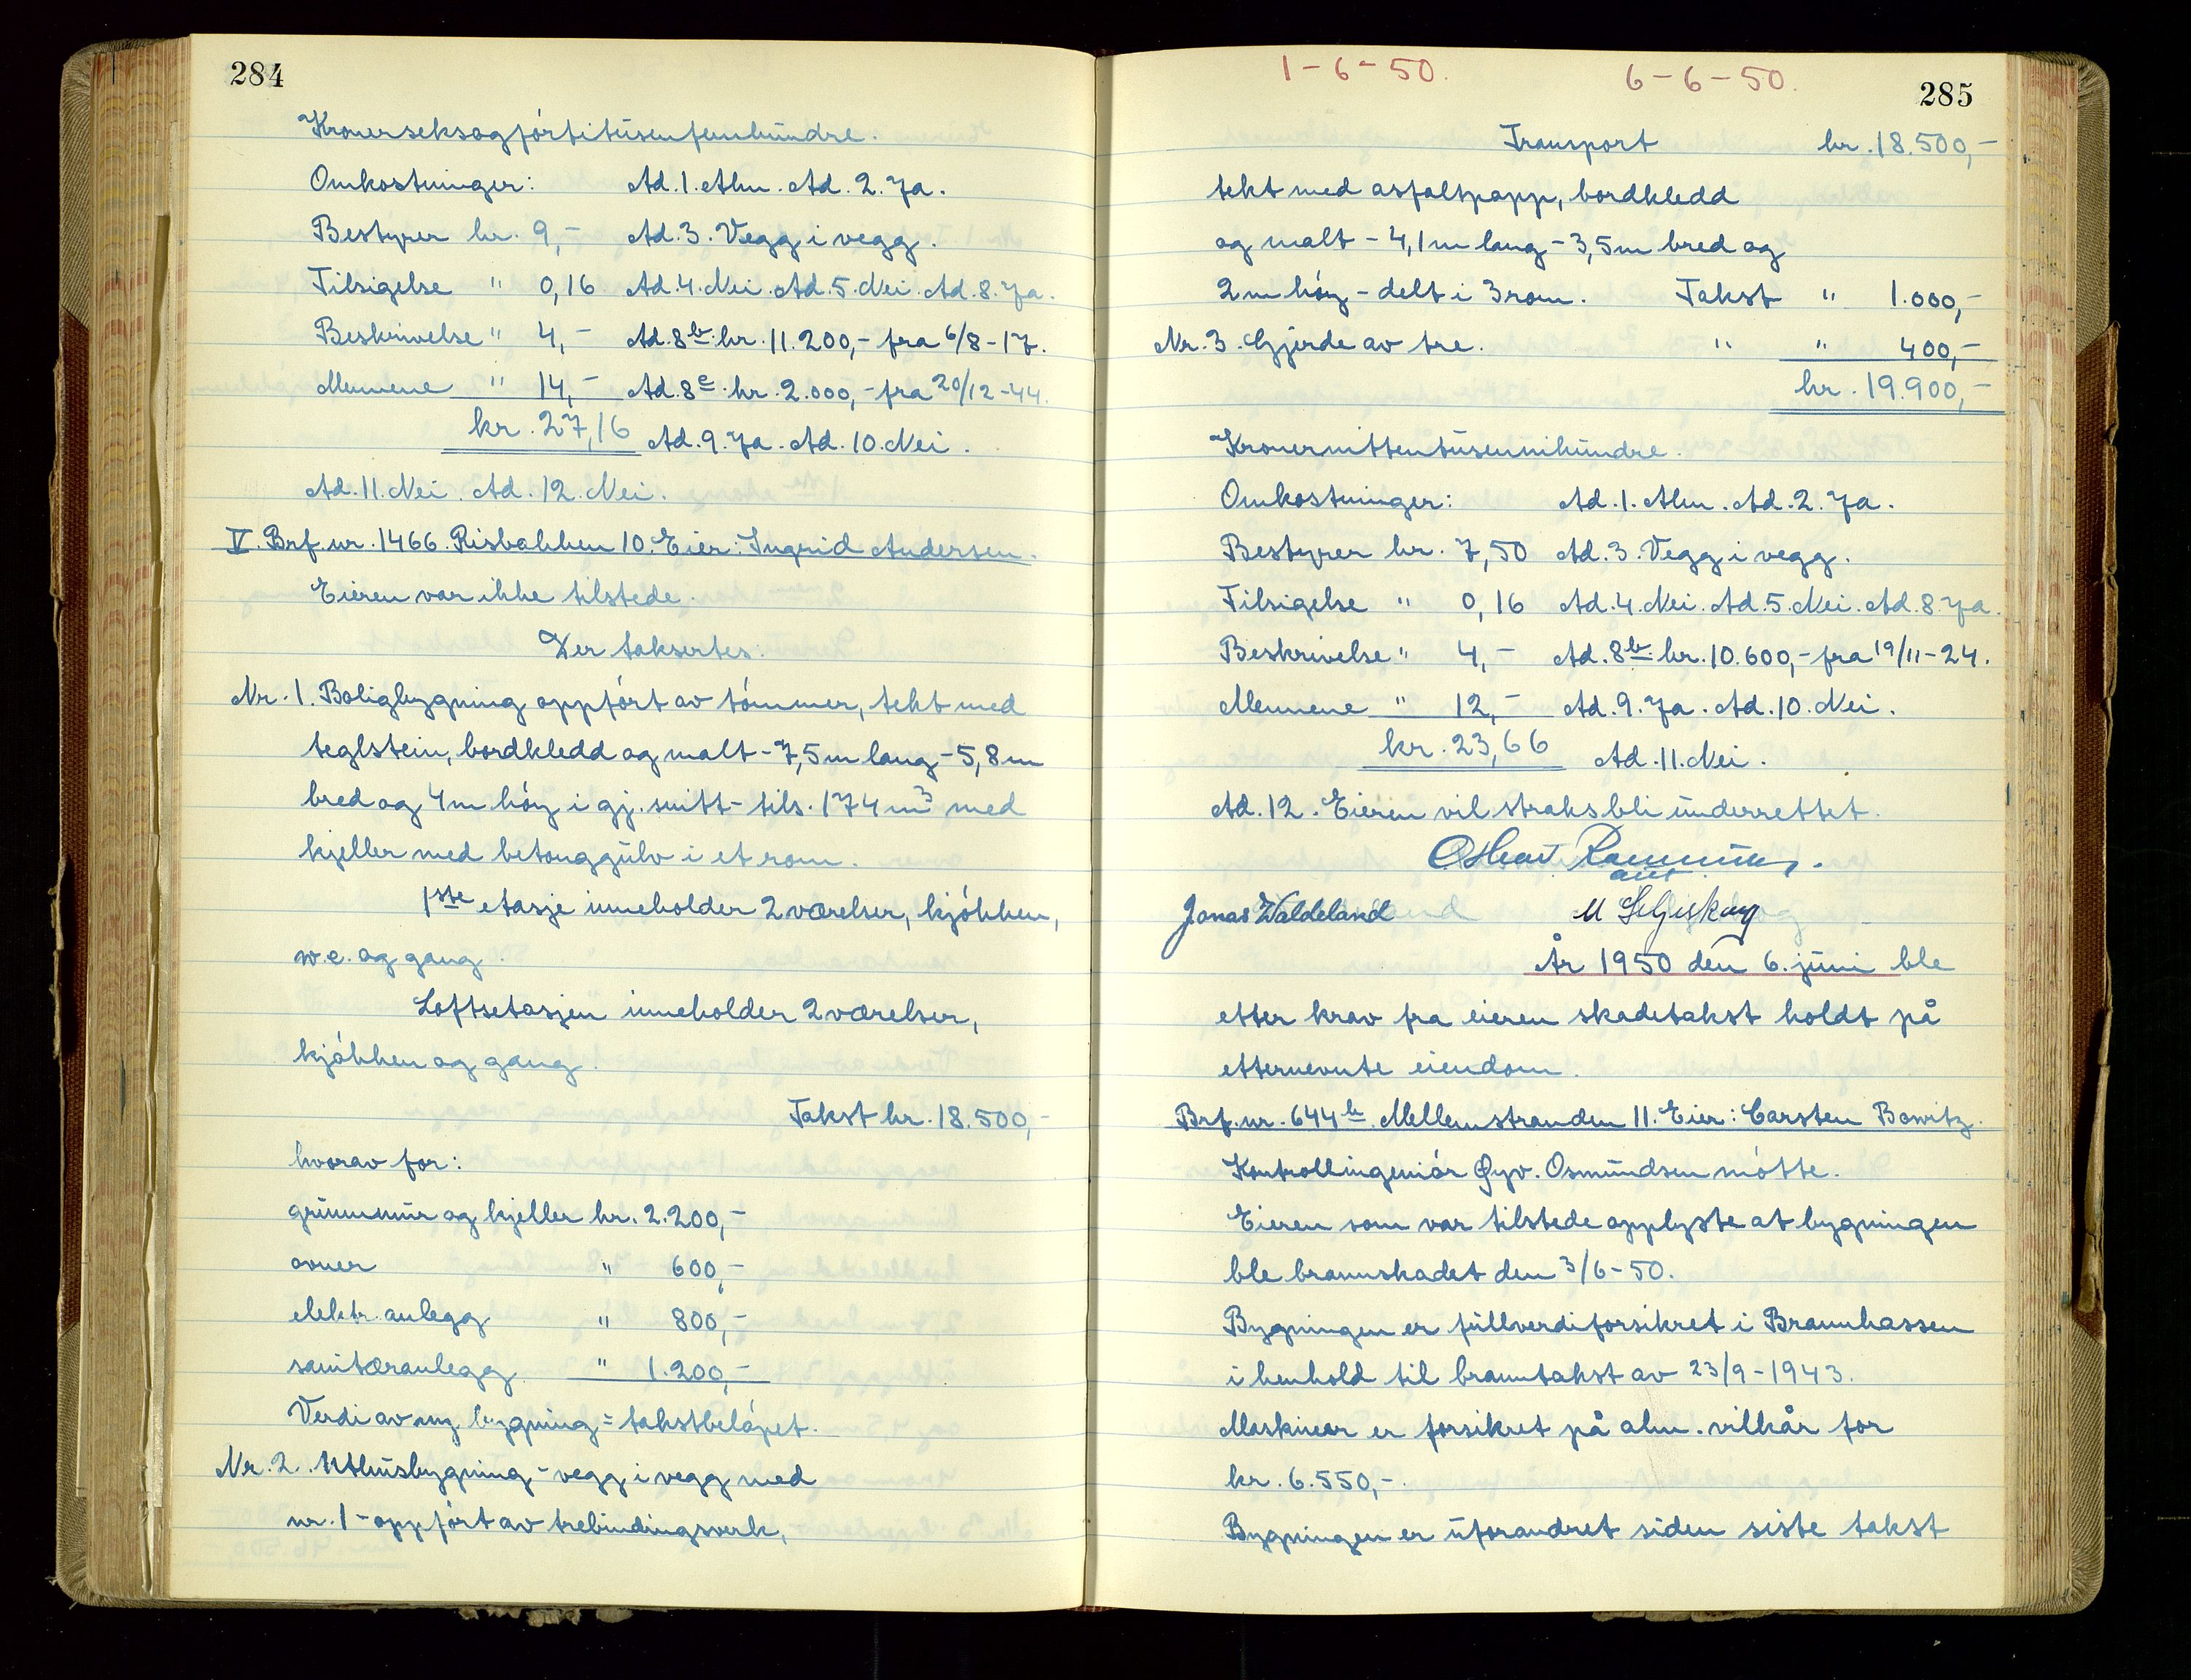 284
Kronerseksogförtitusenfemhundre.
Omkostninger: Ad. 1. Alm. Ad. 2. Ja.
Bestyrer kr. 9,- Ad. 3. Vegg i vegg.
Tilsigelse " 0,16 Ad. 4. Nei. Ad. 5. Nei. Ad. 8. Ja.
Beskrivelse " 4,- Ad. 8b. kr. 11.200,- fra 6/8-17.
Mennene " 14,- Ad. 8c. kr. 2.000,- fra 20/12-44.
kr. 27,16 Ad. 9. Ja. Ad. 10. Nei.
Ad. 11. Nei. Ad. 12. Nei.
V. Brf. nr. 1466. Risbakken 10. Eier: Ingrid Andersen.
Eieren var ikke tilstede.
Der taksertes:
Nr. 1. Boligbygning oppført av tømmer, tekt med
teglstein, bordkledd og malt - 7,5 m lang - 5,8 m
bred og 4 m høy i gj. snitt - tils. 174 m³ med
kjeller med betonggulv i et rom.
1ste etasje inneholder 2 værelser, kjøkken,
w.c. og gang.
Loftsetasjen inneholder 2 værelser,
kjøkken og gang.
Takst kr. 18.500,-
hvorav for:
grunnmur og kjeller kr. 2.200,-
ovner " 600,-
elektr. anlegg " 800,-
sanitæranlegg " 1.200,-
Verdi av ny bygning = takstbeløpet.
Nr. 2. Uthusbygning - vegg i vegg med
nr. 1 - oppført av trebindingsverk,
1-6-50. 6-6-50.
285
Transport kr. 18.500,-
tekt med asfaltpapp, bordkledd
og malt - 4,1 m lang - 3,5 m bred og
2 m høy - delt i 3 rom. Takst " 1.000,-
Nr. 3. Gjerde av tre. " " 400,-
kr. 19.900,-
Kronernittentusennihundre.
Omkostninger: Ad. 1. Alm. Ad. 2. Ja.
Bestyrer kr. 7,50 Ad. 3. Vegg i vegg.
Tilsigelse " 0,16 Ad. 4. Nei. Ad. 5. Nei. Ad. 8. Ja.
Beskrivelse " 4,- Ad. 8b. kr. 10.600,- fra 19/11-24.
Mennene " 12,- Ad. 9. Ja. Ad. 10. Nei.
kr. 23,66 Ad. 11. Nei.
Ad. 12. Eieren vil straks bli underrettet.
Jonas Waldeland
År 1950 den 6. juni ble
etter krav fra eieren skadetakst holdt på
etternevnte eiendom.
Brf. nr. 644b. Mellemstranden 11. Eier: Carsten Bowitz.
Kontrollingeniør Øyv. Osmundsen møtte.
Eieren som var tilstede opplyste at bygningen
ble brannskadet den 3/6-50.
Bygningen er fullverdiforsikret i Brannkassen
i henhold til branntakst av 23/9-1943.
Maskiner er forsikret på alm. vilkår for
kr. 6.550,-.
Bygningen er uforandret siden siste takst